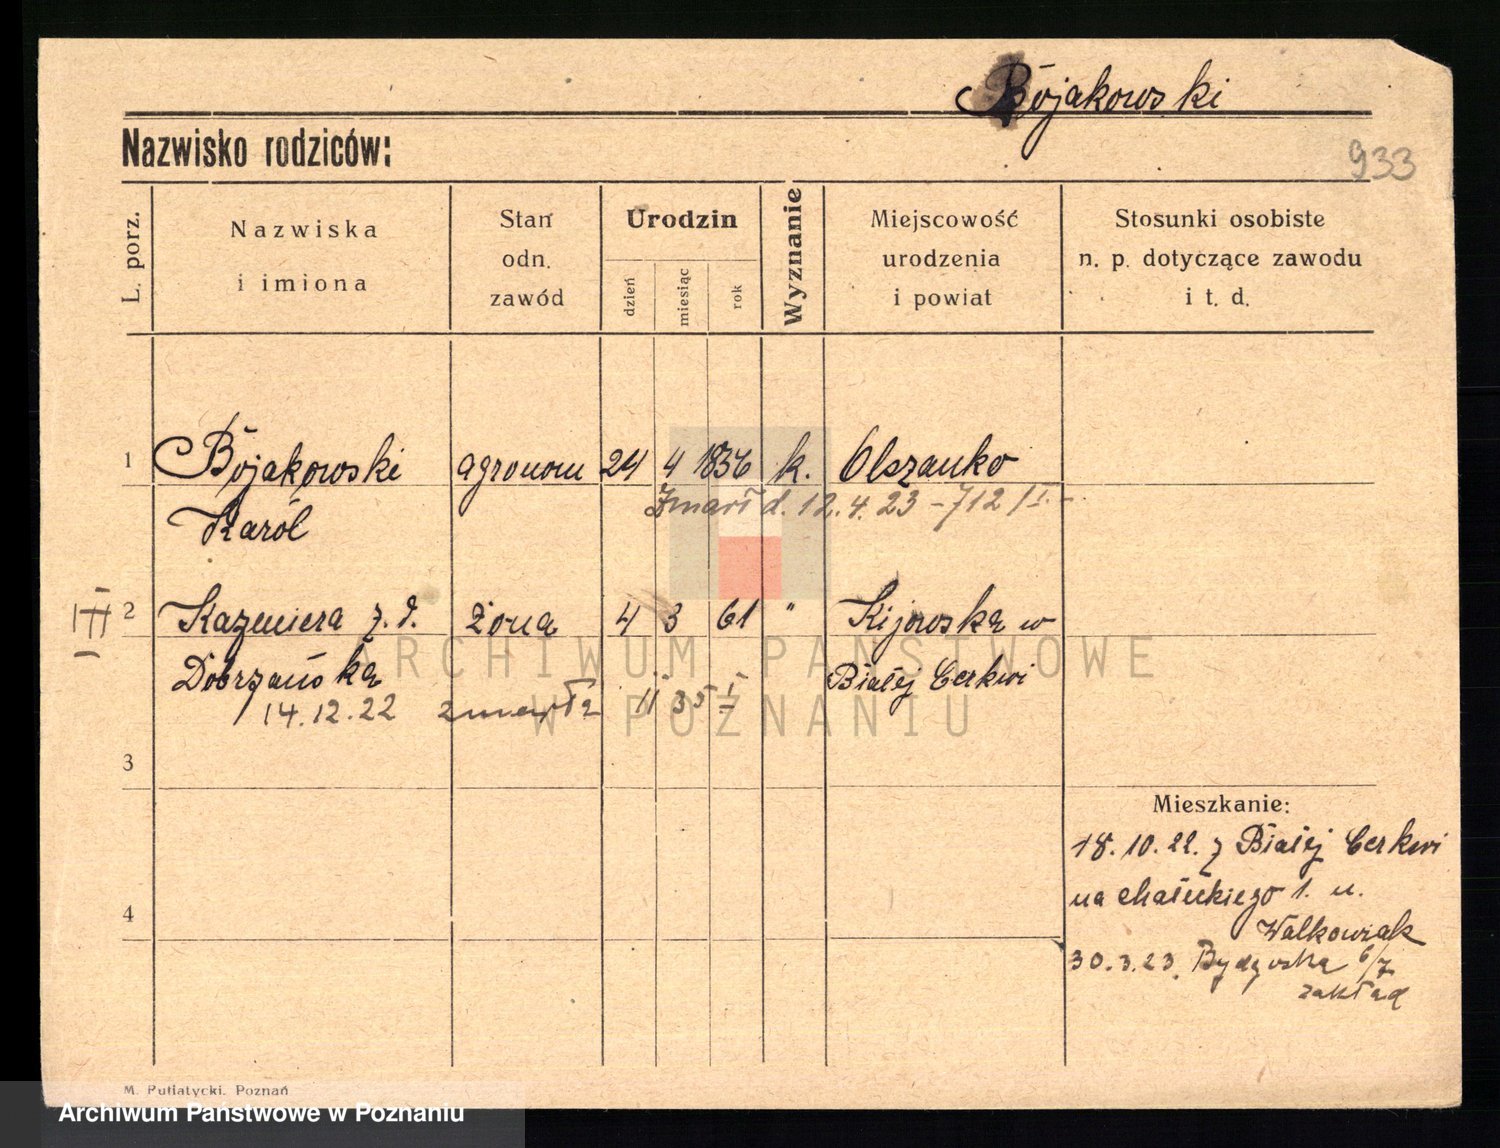 Bojakowski
Nazwisko rodziców:
933
L. porz.
Nazwiska
i imiona
Stan
odn.
zawód
Urodzin
dzień
miesiąc
rok
Wyznanie
Miejscowość
urodzenia
i powiat
Stosunki osobiste
n. p. dotyczące zawodu
i t. d.
1 Bojakowski agronom 24 4 1856 k. Olszanko
Zmarł d. 12.4.23 - 712/I. -
Karól
III 2 Kazimiera z. d. żona 4 3 61 " Kijowska w
Dobrzańska Białej Cerkwi
14.12.22 zmarła II 35 I
3
Mieszkanie:
18.10.22. z Białej Cerkwi
na Małeckiego 1. u.
4
Walkowiak
30.3.23. Bydgoska 6/7
zakład
M. Putiatycki. Poznań
ARCHIWUM PAŃSTWOWE
W POZNANIU
Archiwum Państwowe w Poznaniu